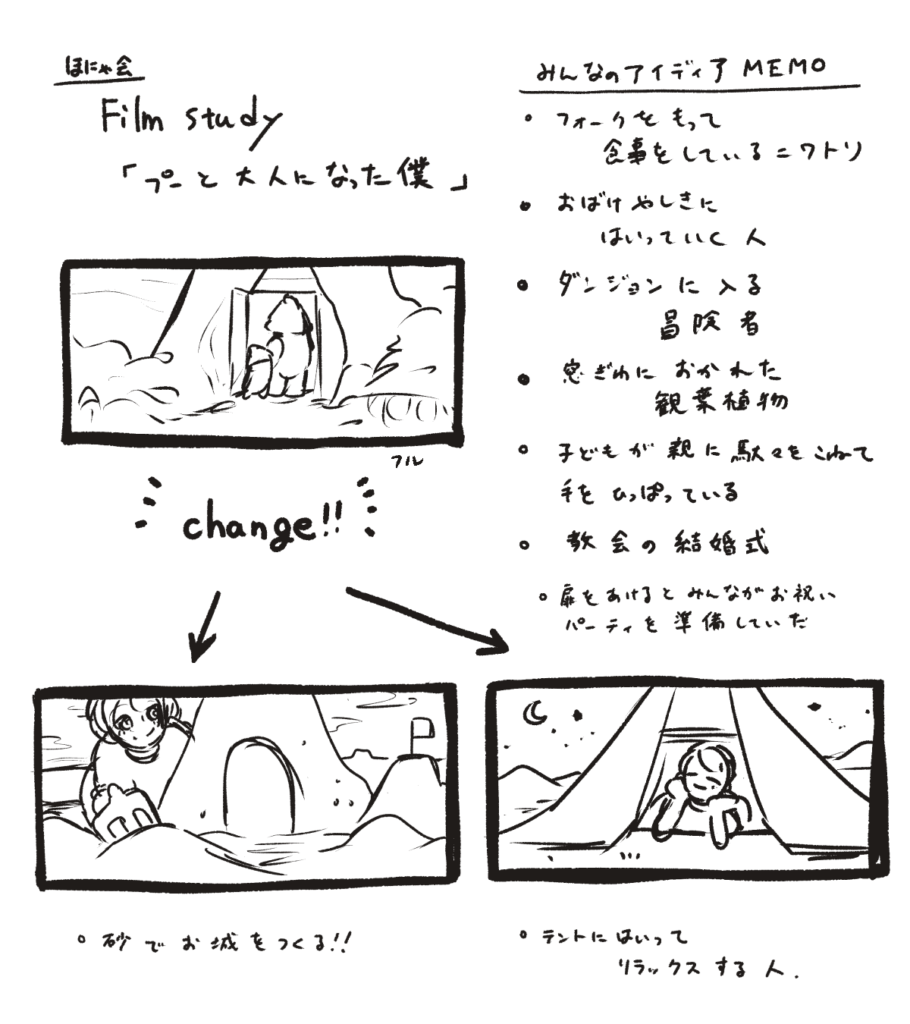 ほにゃ会
Film study
「プーと大人になった僕」
フル
change!!
。砂でお城をつくる!!
みんなのアイディア MEMO
。フォークをもって
食事をしているニワトリ
。おばけやしきに
はいっていく人
。ダンジョンに入る
冒険者
。窓ぎわにおかれた
観葉植物
。子どもが親に駄々をこねて
手をひっぱっている
。教会の結婚式
。扉をあけるとみんながお祝い
パーティを準備していた
。テントにはいって
リラックスする人.